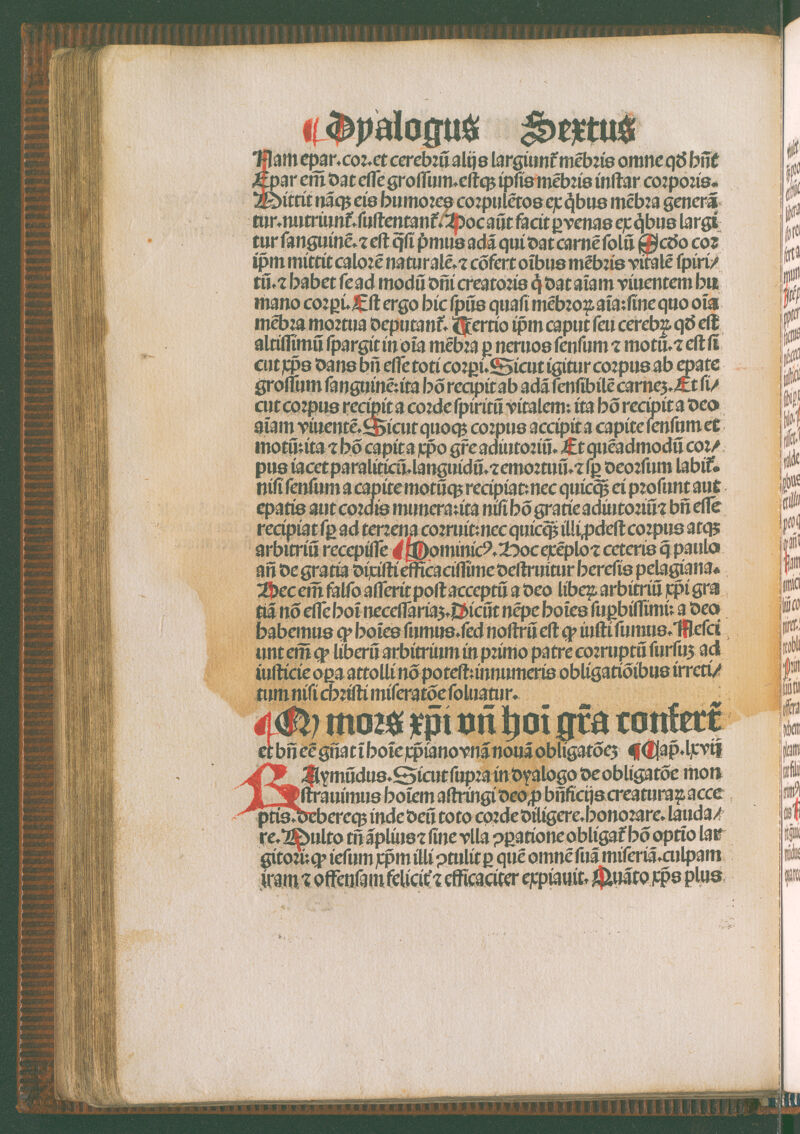 ¶ Dyalogus Sextus
Nam epar.cor.et cerebrū alijs largiunt᷑ mēbris omne qđ hn̄t
Epar em̄ dat esse grossum.estqꝫ ipsis mēbris instar corporis.
Mittit nāqꝫ eis humores corpulētos ex q̇bus mēbra generā
tur.nutriunt᷑.sustentant᷑. Hoc aūt facit ꝑ venas ex q̇bus largi
tur sanguinē.⁊ est q̄si p̓mus adā qui dat carnē solū Scđo cor
ip̄m mittit calorē naturalē.⁊ cōfert oībus mēbris vitalē spiri⸗
tū.⁊ habet se ad modū dn̄i creatoris q̇ dat aīam viuentem hu
mano corꝑi. Est ergo hic sp̄us quasi mēbroꝝ aīa: sine quo oīa
mēbra mortua deputant᷑. Tertio ip̄m caput seu cerebꝝ qđ est
altissimū spargit in oīa mēbra ꝑ neruos sensum ⁊ motū.⁊ est si
cut xp̄s dans bn̄ esse toti corꝑi. Sicut igitur corpus ab epate
grossum sanguinē: ita hō recipit ab adā sensibilē carneꝫ. Et si⸗
cut corpus recipit a corde spiritū vitalem: ita hō recipit a deo
aīam viuentē. Sicut quoqꝫ corpus accipit a capite sensum et
motū: ita ⁊ hō capit a xp̄o gr̄e adiutoriū. Et quēadmodū cor⸗
pus iacet paraliticū.languidū.⁊ emortuū.⁊ sꝑ deorsum labit᷑.
nisi sensum a capite motūqꝫ recipiat: nec quicq̄ꝫ ei prosunt aut
epatis aut cordis munera: ita nisi hō gratie adiutoriū ⁊ bn̄ esse
recipiat sꝑ ad terrena corruit: nec quicq̄ꝫ illi ꝓdest corpus atqꝫ
arbitriū recepisse ¶ Dominicꝰ. Hoc exēplo ⁊ ceteris q̄ paulo
an̄ de gratia dixisti efficacissime destruitur heresis pelagiana.
Hec em̄ falso asserit post acceptū a deo libeꝝ arbitriū xp̄i gra
tiā nō esse hoī necessariaꝫ. Dicūt nēpe hoīes suꝑbissimi: a deo
habemus ꝙ hoīes sumus.sed nostrū est ꝙ iusti sumus. Nesci
unt em̄ ꝙ liberū arbitrium in primo patre corruptū sursuꝫ ad
iusticie oꝑa attolli nō potest: innumeris obligatiōibus irreti⸗
tum nisi christi miseratōe soluatur.
¶ Ꝙ mors xp̄i vn̄ hoī gr̄a confert᷑
et bn̄ eē gn̄at ī hoīe xp̄iano vnā nouā obligatōeꝫ ¶ Cap̄.lxvij
RAymūdus. Sicut supra in dyalogo de obligatōe mon
strauimus hoīem astringi deo ꝓ bn̄ficijs creaturaꝝ acce
ptis.debereqꝫ inde deū toto corde diligere.honorare.lauda⸗
re. Multo tn̄ āplius ⁊ sine vlla ꝯꝑatione obligat᷑ hō optīo lar
gitori: ꝙ iesum xp̄m illi ꝯtulit ꝑ quē omnē suā miseriā.culpam
iram ⁊ offensam felicit᷑ ⁊ efficaciter expiauit. Quāto xp̄s plus